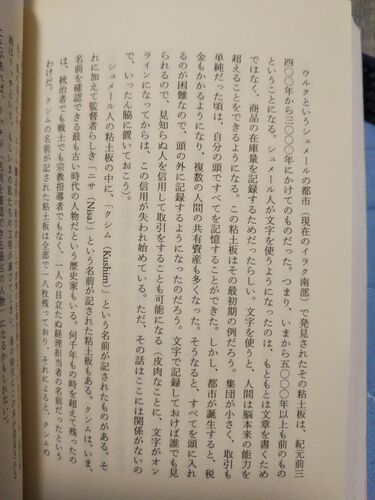 ウルクというシュメールの都市（現在のイラク南部）で発見されたその粘土板は、紀元前三
四〇〇年から三〇〇〇年にかけてのものだった。つまり、いまから五〇〇〇年以上も前のもの
ということになる。シュメール人が文字を使うようになったのは、もともとは文章を書くため
ではなく、商品の在庫量を記録するためだったらしい。文字を使うと、人間は脳本来の能力を
超えることをできるようになる。この粘土板はその最初期の例だろう。集団が小さく、取引も
単純だった頃は、自分の頭ですべてを記憶することができた。しかし、都市が誕生すると、税
金もかかるようになり、複数の人間の共有資産も多くなった。そうなると、すべてを頭に入れ
るのが困難なので、頭の外に記録するようになったのだろう。文字で記録しておけば誰でも見
られるので、見知らぬ人を信用して取引をすることも可能になる（皮肉なことに、文字がオン
ラインになってからは、この信用が失われ始めている。ただ、その話はここには関係がないの
で、いったん脇に置いておこう）。
シュメール人の粘土板の中に、「クシム（Kushim）」という名前が記されたものがある。そ
れに加えて監督者らしき「ニサ（Nisa）」という名前が記された粘土板もある。クシムは、いま、
名前を確認できる最も古い時代の人物だという歴史家もいる。何千年もの時を超えて残ったの
は、統治者でも戦士でも宗教指導者でもなく、一人の目立たぬ経理担当者の名前だったという
わけだ。クシムの名前が記された粘土板は全部で一八枚残っており、それによると、クシムの